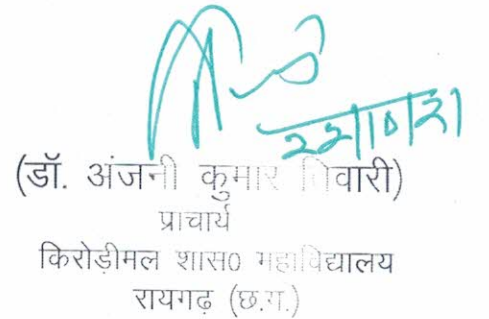 22/10/21
(डॉ. अंजनी कुमार तिवारी)
प्राचार्य
किरोड़ीमल शास0 महाविद्यालय
रायगढ़ (छ.ग.)